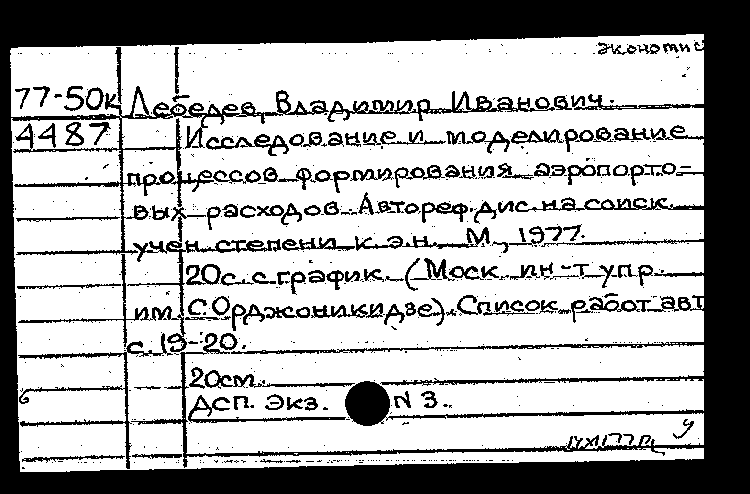 экономис
77-50к Лебедев, Владимир Иванович.
4487 Исследование и моделирование
процессов формирования аэропорто-
вых расходов. Автореф. дис. на соиск.
учен. степени к. э. н., М., 1977.
20с. с график. (Моск. ин-т упр.
им. С. Орджоникидзе). Список работ авт
с. 19-20.
20см.
ДСП. Экз. N 3.
б
у